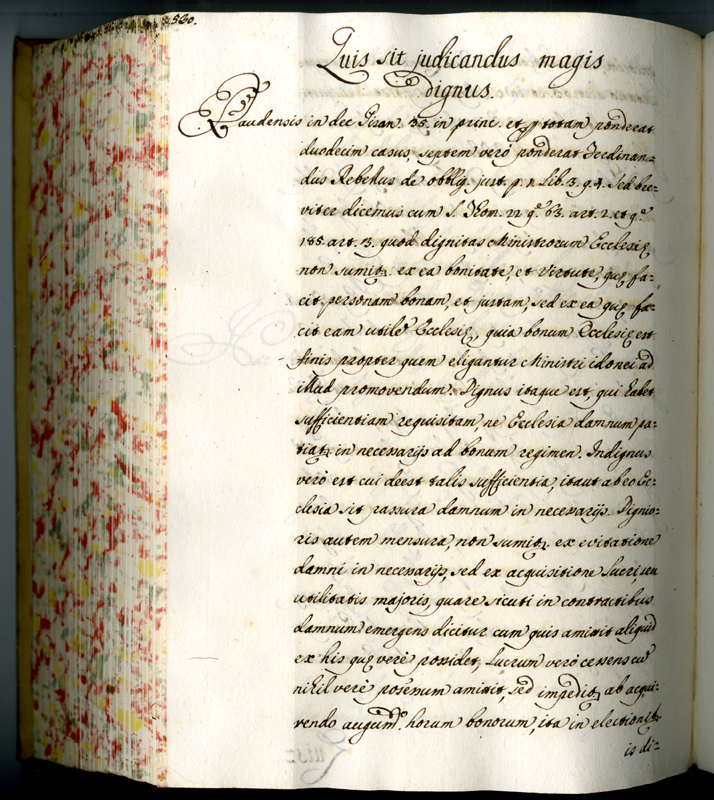 560.
Quis sit judicandus magis
dignus.
Gaudensis in dec Gran. 35. in princ. et p totam ponderat
duodecim casus, septem verò ponderat Ferdinan=
dus Rebellus de obblig. just. p. 1. Lib. 3. q. 4. Sed bre=
viter dicemus cum S. Thom. 22 q.ᵉ 63. art. 2. et q.ᵉ
185. art. 3. quod dignitas Ministrorum Ecclesię
non sumit.ʳ ex ea bonitate, et virtute, quę fa=
cit personam bonam, et justam, sed ex ea quę fa=
cit eam utilẽ Ecclesię, quia bonum Ecclesię est
finis propter quem eligantur Ministri idonei ad
illud promovendum. Dignus itaque est, qui habet
sufficientiam requisitam, ne Ecclesia damnum pa=
tiat.ʳ in necessarijs ad bonum regimen. Indignus
verò est cui deest talis sufficientia, itaut ab eo Ec=
clesia sit passura damnum in necessarijs. Dignio=
ris autem mensura, non sumit.ʳ ex evitatione
damni in necessarijs, sed ex acquisitione lucri, seu
utilitatis majoris, quare sicuti in contractibus
damnum emergens dicitur cum quis amittit aliquid
ex his quę verè possidet, Lucrum verò cessens cũ
nihil verè possessum amittit, sed impedit.ʳ ab acqui=
rendo augum.ᵒ horum bonorum, ita in election
is di=